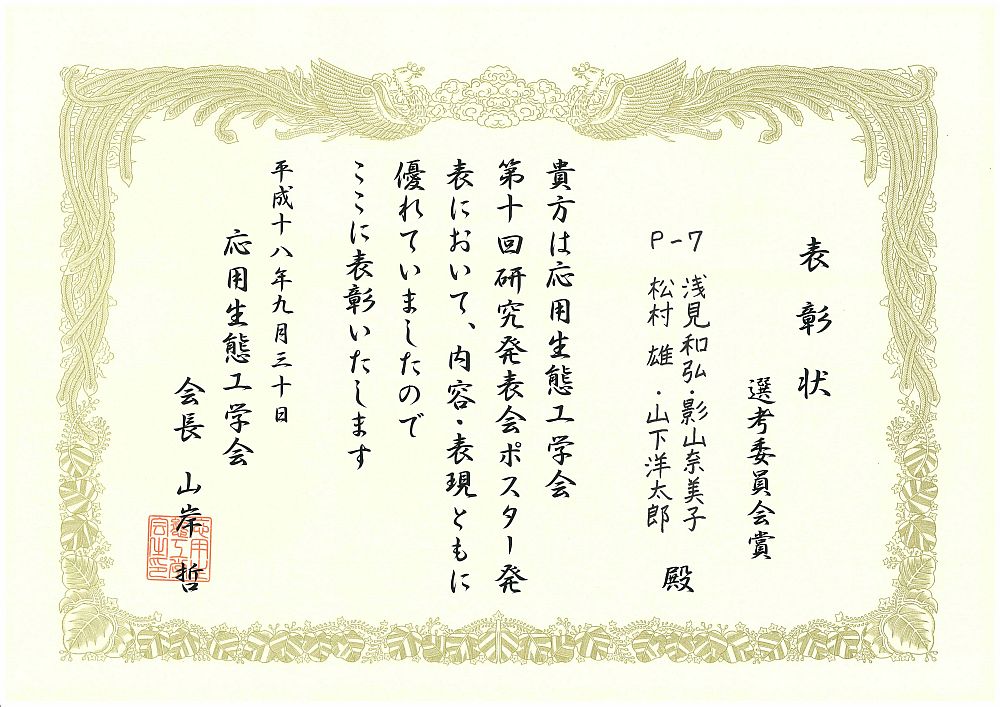 表彰状
選考委員会賞
P-7 浅見和弘・影山奈美子
松村 雄・山下洋太郎
殿
貴方は応用生態工学会
第十回研究発表会ポスター発
表において、内容・表現ともに
優れていましたので
ここに表彰いたします
平成十八年九月三十日
応用生態工学会
会長 山岸 哲